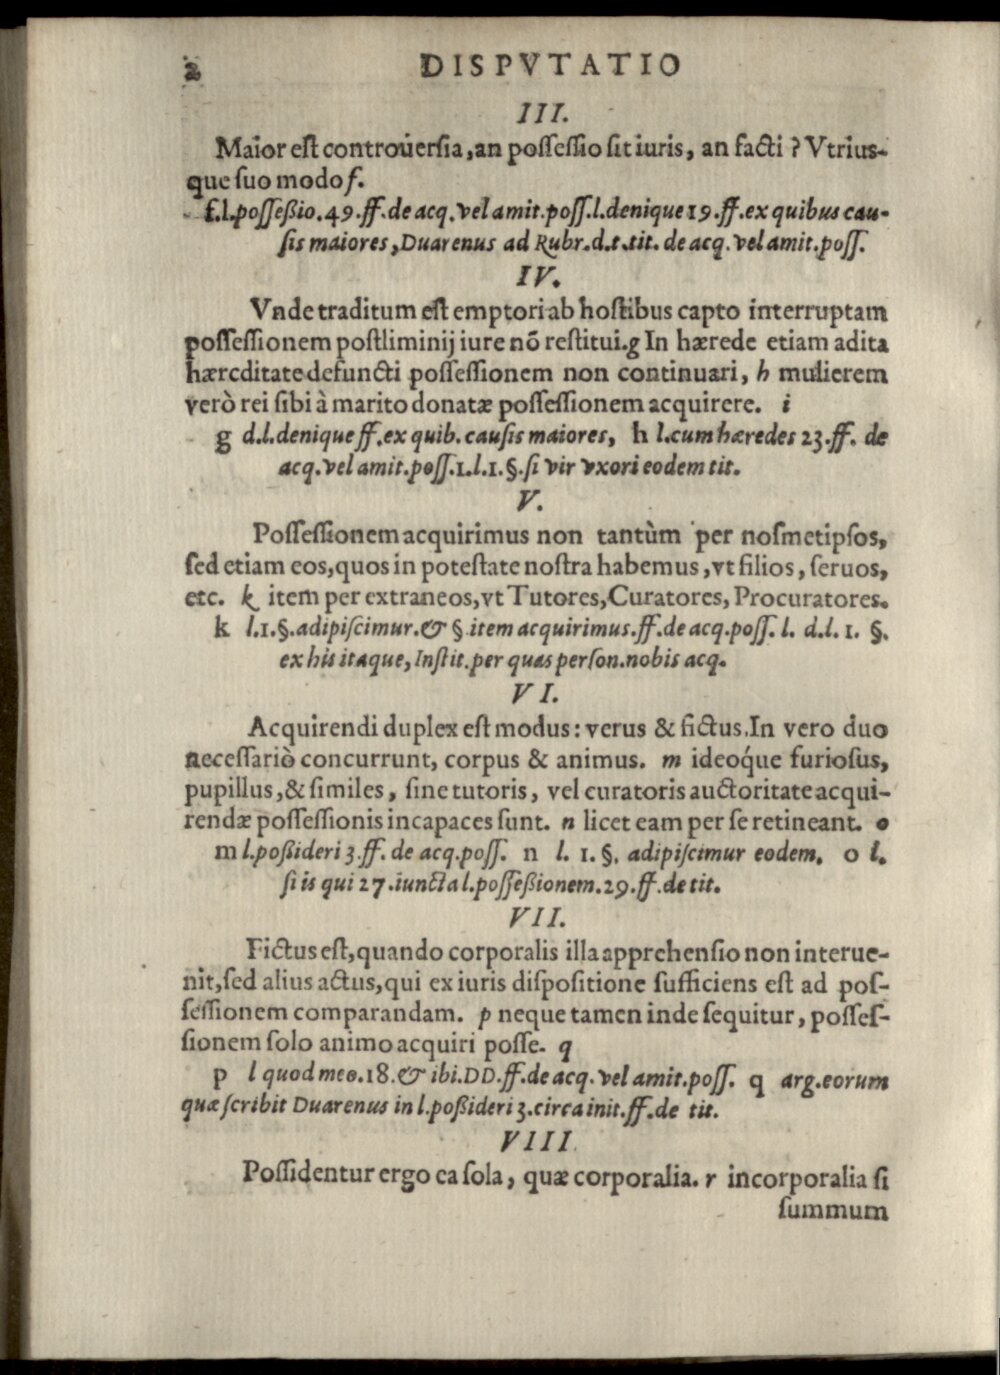 2 DISPVTATIO
III.
Maior est controuersia, an possessio sit iuris, an facti? Vtrius-
que suo modo f.
f. l. possessio. 49. ff. de acq. vel amit. poss. l. denique 19. ff. ex quibus cau-
sis maiores, Duarenus ad Rubr. d. t. tit. de acq. vel amit. poss.
IV.
Vnde traditum est emptori ab hostibus capto interruptam
possessionem postliminij iure nõ restitui. g In hærede etiam adita
hæreditate defuncti possessionem non continuari, h mulierem
verò rei sibi à marito donatæ possessionem acquirere. i
g d. l. denique ff. ex quib. causis maiores, h l. cum hæredes 23. ff. de
acq. vel amit. poss. 1. l. 1. §. si vir vxori eodem tit.
V.
Possessionem acquirimus non tantùm per nosmetipsos,
sed etiam eos, quos in potestate nostra habemus, vt filios, seruos,
etc. k item per extraneos, vt Tutores, Curatores, Procuratores.
k l. 1. §. adipiscimur. & § item acquirimus. ff. de acq. poss. l. d. l. 1. §.
ex his itaque, Instit. per quas person. nobis acq.
VI.
Acquirendi duplex est modus: verus & fictus. In vero duo
necessariò concurrunt, corpus & animus. m ideóque furiosus,
pupillus, & similes, sine tutoris, vel curatoris auctoritate acqui-
rendæ possessionis incapaces sunt. n licet eam per se retineant. o
m l. poßideri 3. ff. de acq. poss. n l. 1. §. adipiscimur eodem. o l.
si is qui 27. iuncta l. possessionem. 29. ff. de tit.
VII.
Fictus est, quando corporalis illa apprehensio non interue-
nit, sed alius actus, qui ex iuris dispositione sufficiens est ad pos-
sessionem comparandam. p neque tamen inde sequitur, posses-
sionem solo animo acquiri posse. q
p l quod meo. 18. & ibi. DD. ff. de acq. vel amit. poss. q arg. eorum
quæ scribit Duarenus in l. poßideri 3. circa init. ff. de tit.
VIII
Possidentur ergo ea sola, quæ corporalia. r incorporalia si
summum